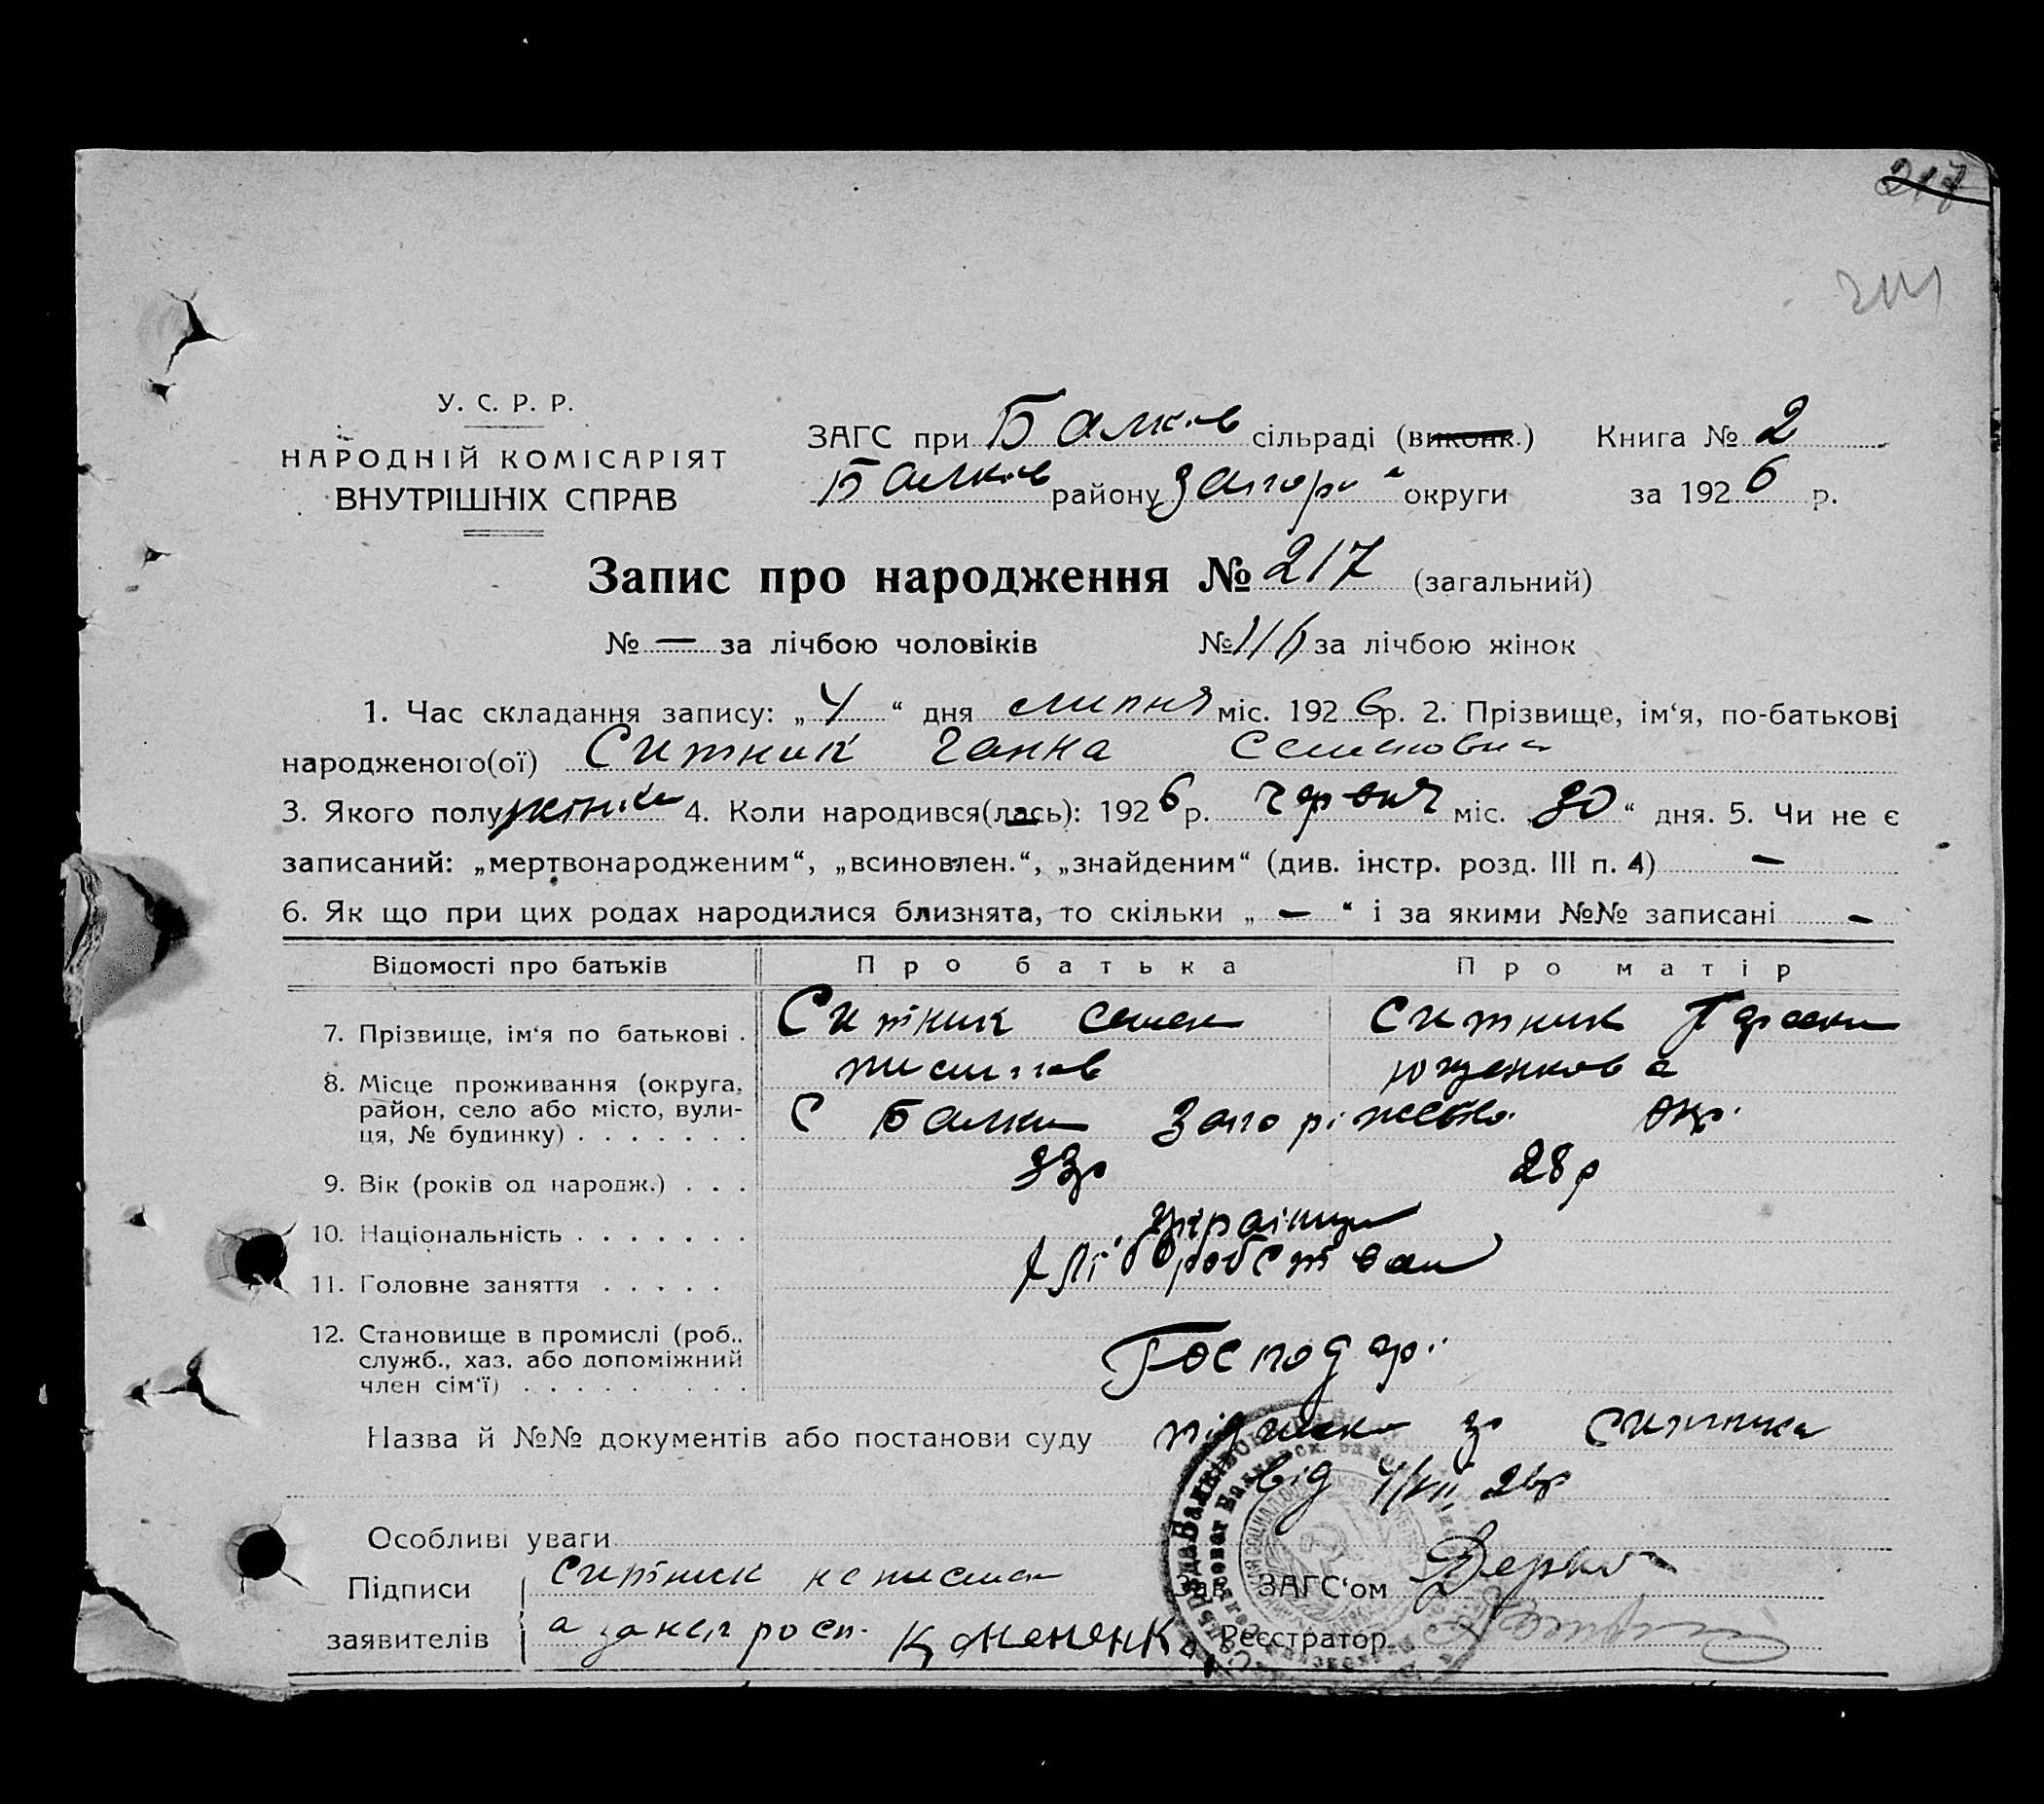 217
У. С. Р. Р.
НАРОДНІЙ КОМІСАРІЯТ
ВНУТРІШНІХ СПРАВ
ЗАГС при Балків сільраді (виконк.) Книга № 2
Балків району Запорі округи за 1926 р.
Запис про народження № 217 (загальний)
№ — за лічбою чоловіків № 116 за лічбою жінок
1. Час складання запису: „ 4 “ дня липня міс. 1926 р. 2. Прізвище, ім‘я, по-батькові
народженого(ої) Ситник Ганна Семеновна
3. Якого полу жіноч 4. Коли народився(лась): 1926 р. червня міс. „ 30 “ дня. 5. Чи не є
записаний: „мертвонародженим“, „всиновлен.“, „знайденим“ (див. інстр. розд. III п. 4) —
6. Як що при цих родах народилися близнята, то скільки „ — “ і за якими №№ записані —
Відомості про батьків Про батька Про матір
7. Прізвище, ім‘я по батькові . Ситник Семен Ситник Параска
8. Місце проживання (округа, район, село або місто, вулиця, № будинку) С Балки Запоріжсько окр.
9. Вік (років од народж.) . . . 33р 28р
10. Національність . . . . . . . українці
11. Головне заняття . . . . . Хліборобством
12. Становище в промислі (роб., служб., хаз. або допоміжний член сім‘ї) . . . . . . . . . Господарі
Назва й №№ документів або постанови суду за Ситника
від 4/VII 26р
Особливі уваги
Підписи Ситник неписьмен Зав. ЗАГС‘ом
заявителів а за него росп. Кононенко Реєстратор